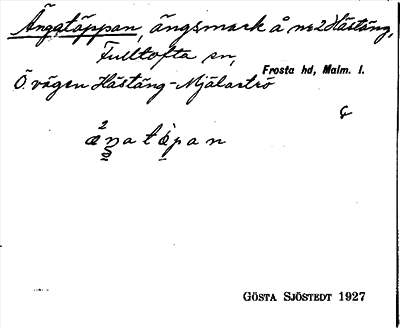 Ängatäppan, ängsmark å nr 2 Hästäng,
Fulltofta sn,
Frosta hd, Malm. l.
Ö. vägen Hästäng-Mjälaströ
GÖSTA SJÖSTEDT 1927